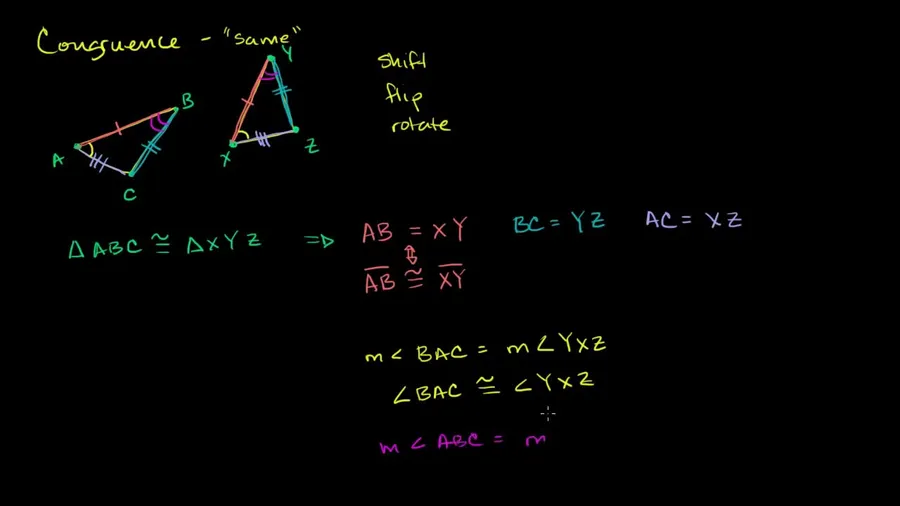 Congruence - "same"
shift
flip
rotate
A
B
C
X
Y
Z
Δ ABC ≅ Δ XYZ ⇒ AB = XY BC = YZ AC = XZ
⇕
AB ≅ XY
m∠BAC = m∠YXZ
∠BAC ≅ ∠YXZ
m∠ABC = m